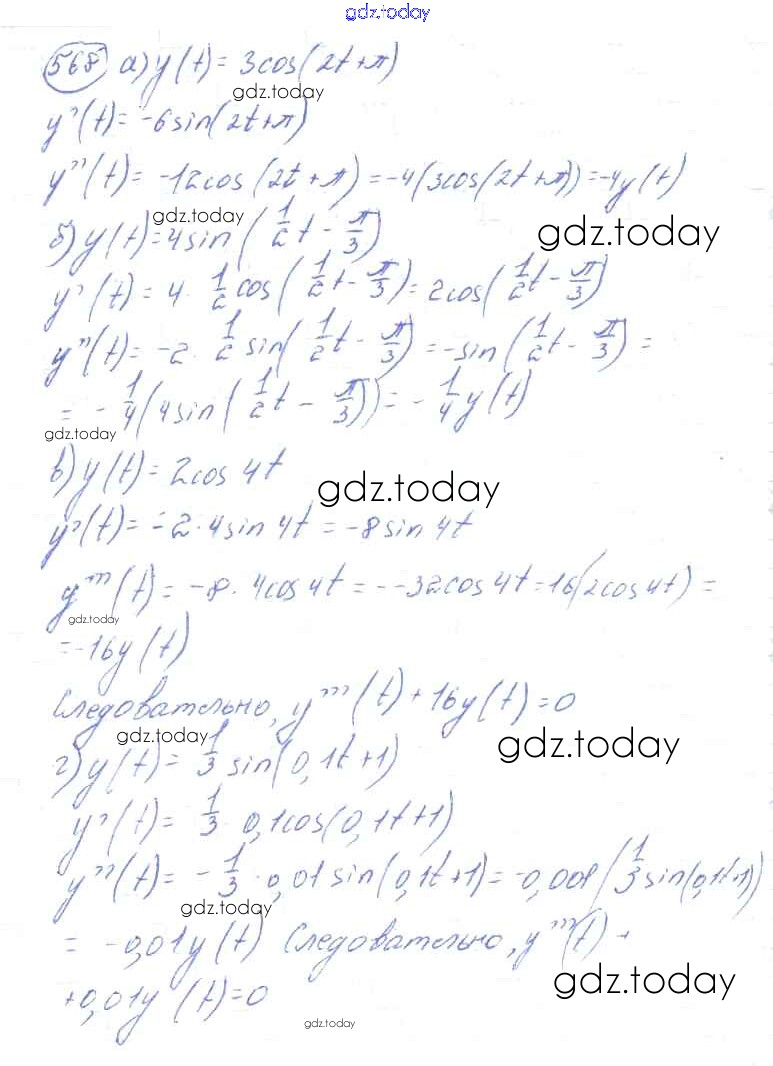 gdz.today
568 а) y(t) = 3cos(2t+π)
gdz.today
y'(t) = -6sin(2t+π)
y''(t) = -12cos(2t+π) = -4(3cos(2t+π)) = -4y(t)
gdz.today
б) y(t) = 4sin(1/2t - π/3)
gdz.today
y'(t) = 4 · 1/2 cos(1/2t - π/3) = 2cos(1/2t - π/3)
y''(t) = -2 · 1/2 sin(1/2t - π/3) = -sin(1/2t - π/3) =
= -1/4(4sin(1/2t - π/3)) = -1/4y(t)
gdz.today
в) y(t) = 2cos 4t
gdz.today
y'(t) = -2·4sin 4t = -8sin 4t
y'''(t) = -8·4cos4t = --32cos4t = 16(2cos4t) =
gdz.today
= -16y(t)
Следовательно, y'''(t) + 16y(t) = 0
gdz.today
gdz.today
г) y(t) = 1/3 sin(0,1t+1)
y'(t) = 1/3 · 0,1cos(0,1t+1)
y'''(t) = -1/3 · 0,01sin(0,1t+1) = -0,001(1/3sin(0,1t+1))
gdz.today
= -0,01y(t) Следовательно, y'''(t) +
gdz.today
+0,01y(t) = 0
gdz.today